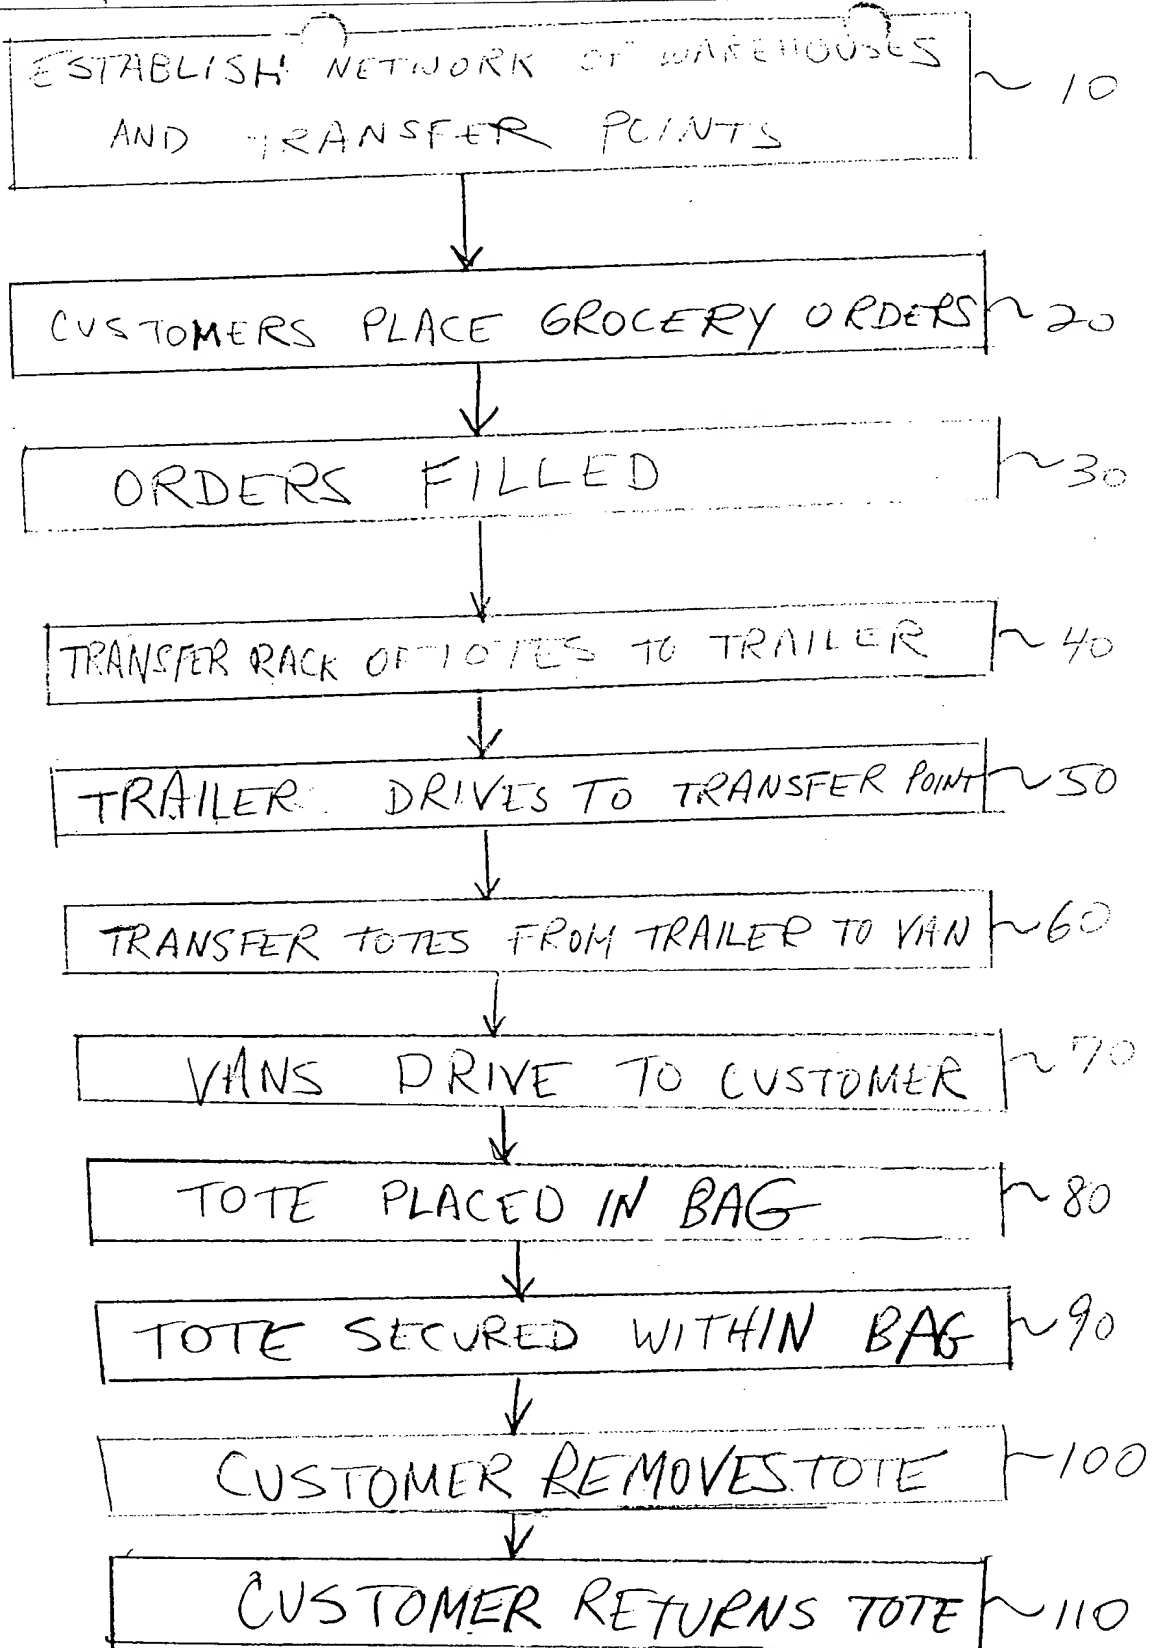 ESTABLISH NETWORK OF WAREHOUSES
AND TRANSFER POINTS
~ 10
CUSTOMERS PLACE GROCERY ORDERS ~ 20
ORDERS FILLED ~ 30
TRANSFER RACK OF TOTES TO TRAILER ~ 40
TRAILER DRIVES TO TRANSFER POINT ~ 50
TRANSFER TOTES FROM TRAILER TO VAN ~ 60
VANS DRIVE TO CUSTOMER ~ 70
TOTE PLACED IN BAG ~ 80
TOTE SECURED WITHIN BAG ~ 90
CUSTOMER REMOVES TOTE ~ 100
CUSTOMER RETURNS TOTE ~ 110